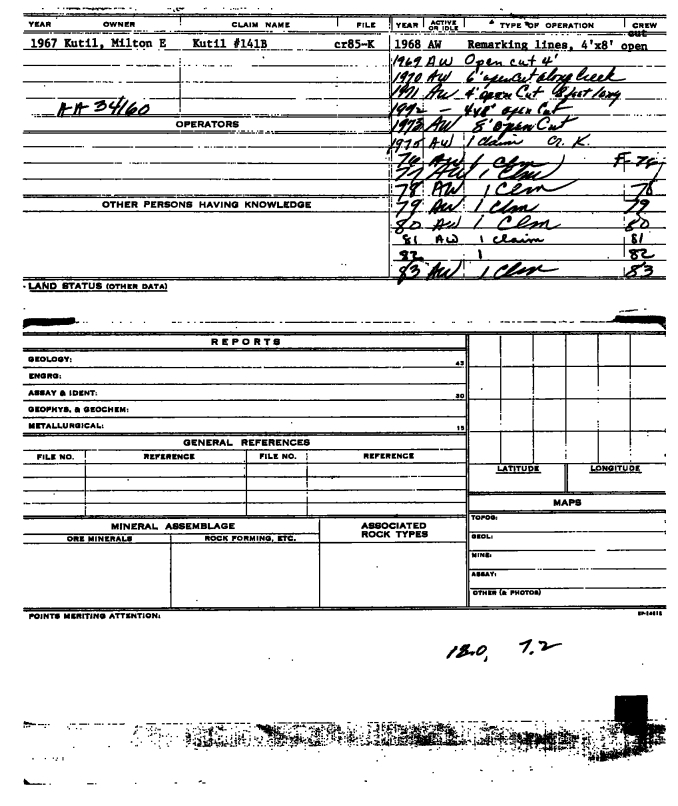 YEAR OWNER CLAIM NAME FILE YEAR ACTIVE OR IDLE TYPE OF OPERATION CREW
cut
1967 Kutil, Milton E Kutil #141B cr85-K 1968 AW Remarking lines, 4'x8' open
1969 AW Open cut 4'
1970 AW 6' open cut along creek
1971 AW 4' open Cut 8 foot long
AA 34160 1972 - 4x8' open Cut
OPERATORS 1973 AW 8' open Cut
1975 AW 1 claim Cr. K.
76 AW 1 Clm F-76
77 AW 1 Clm
78 AW 1 Clm 78
OTHER PERSONS HAVING KNOWLEDGE 79 AW 1 Clm 79
80 AW 1 Clm 80
81 AW 1 claim 81
82 1 82
83 AW 1 Clm 83
LAND STATUS (OTHER DATA)
REPORTS
GEOLOGY: 45
ENGRG:
ASSAY & IDENT: 30
GEOPHYS. & GEOCHEM:
METALLURGICAL: 15
GENERAL REFERENCES
FILE NO. REFERENCE FILE NO. REFERENCE
LATITUDE LONGITUDE
MAPS
MINERAL ASSEMBLAGE ASSOCIATED ROCK TYPES TOPOG:
ORE MINERALS ROCK FORMING, ETC. GEOL:
MINE:
ASSAY:
OTHER (& PHOTOS)
POINTS MERITING ATTENTION:
18.0, 7.2